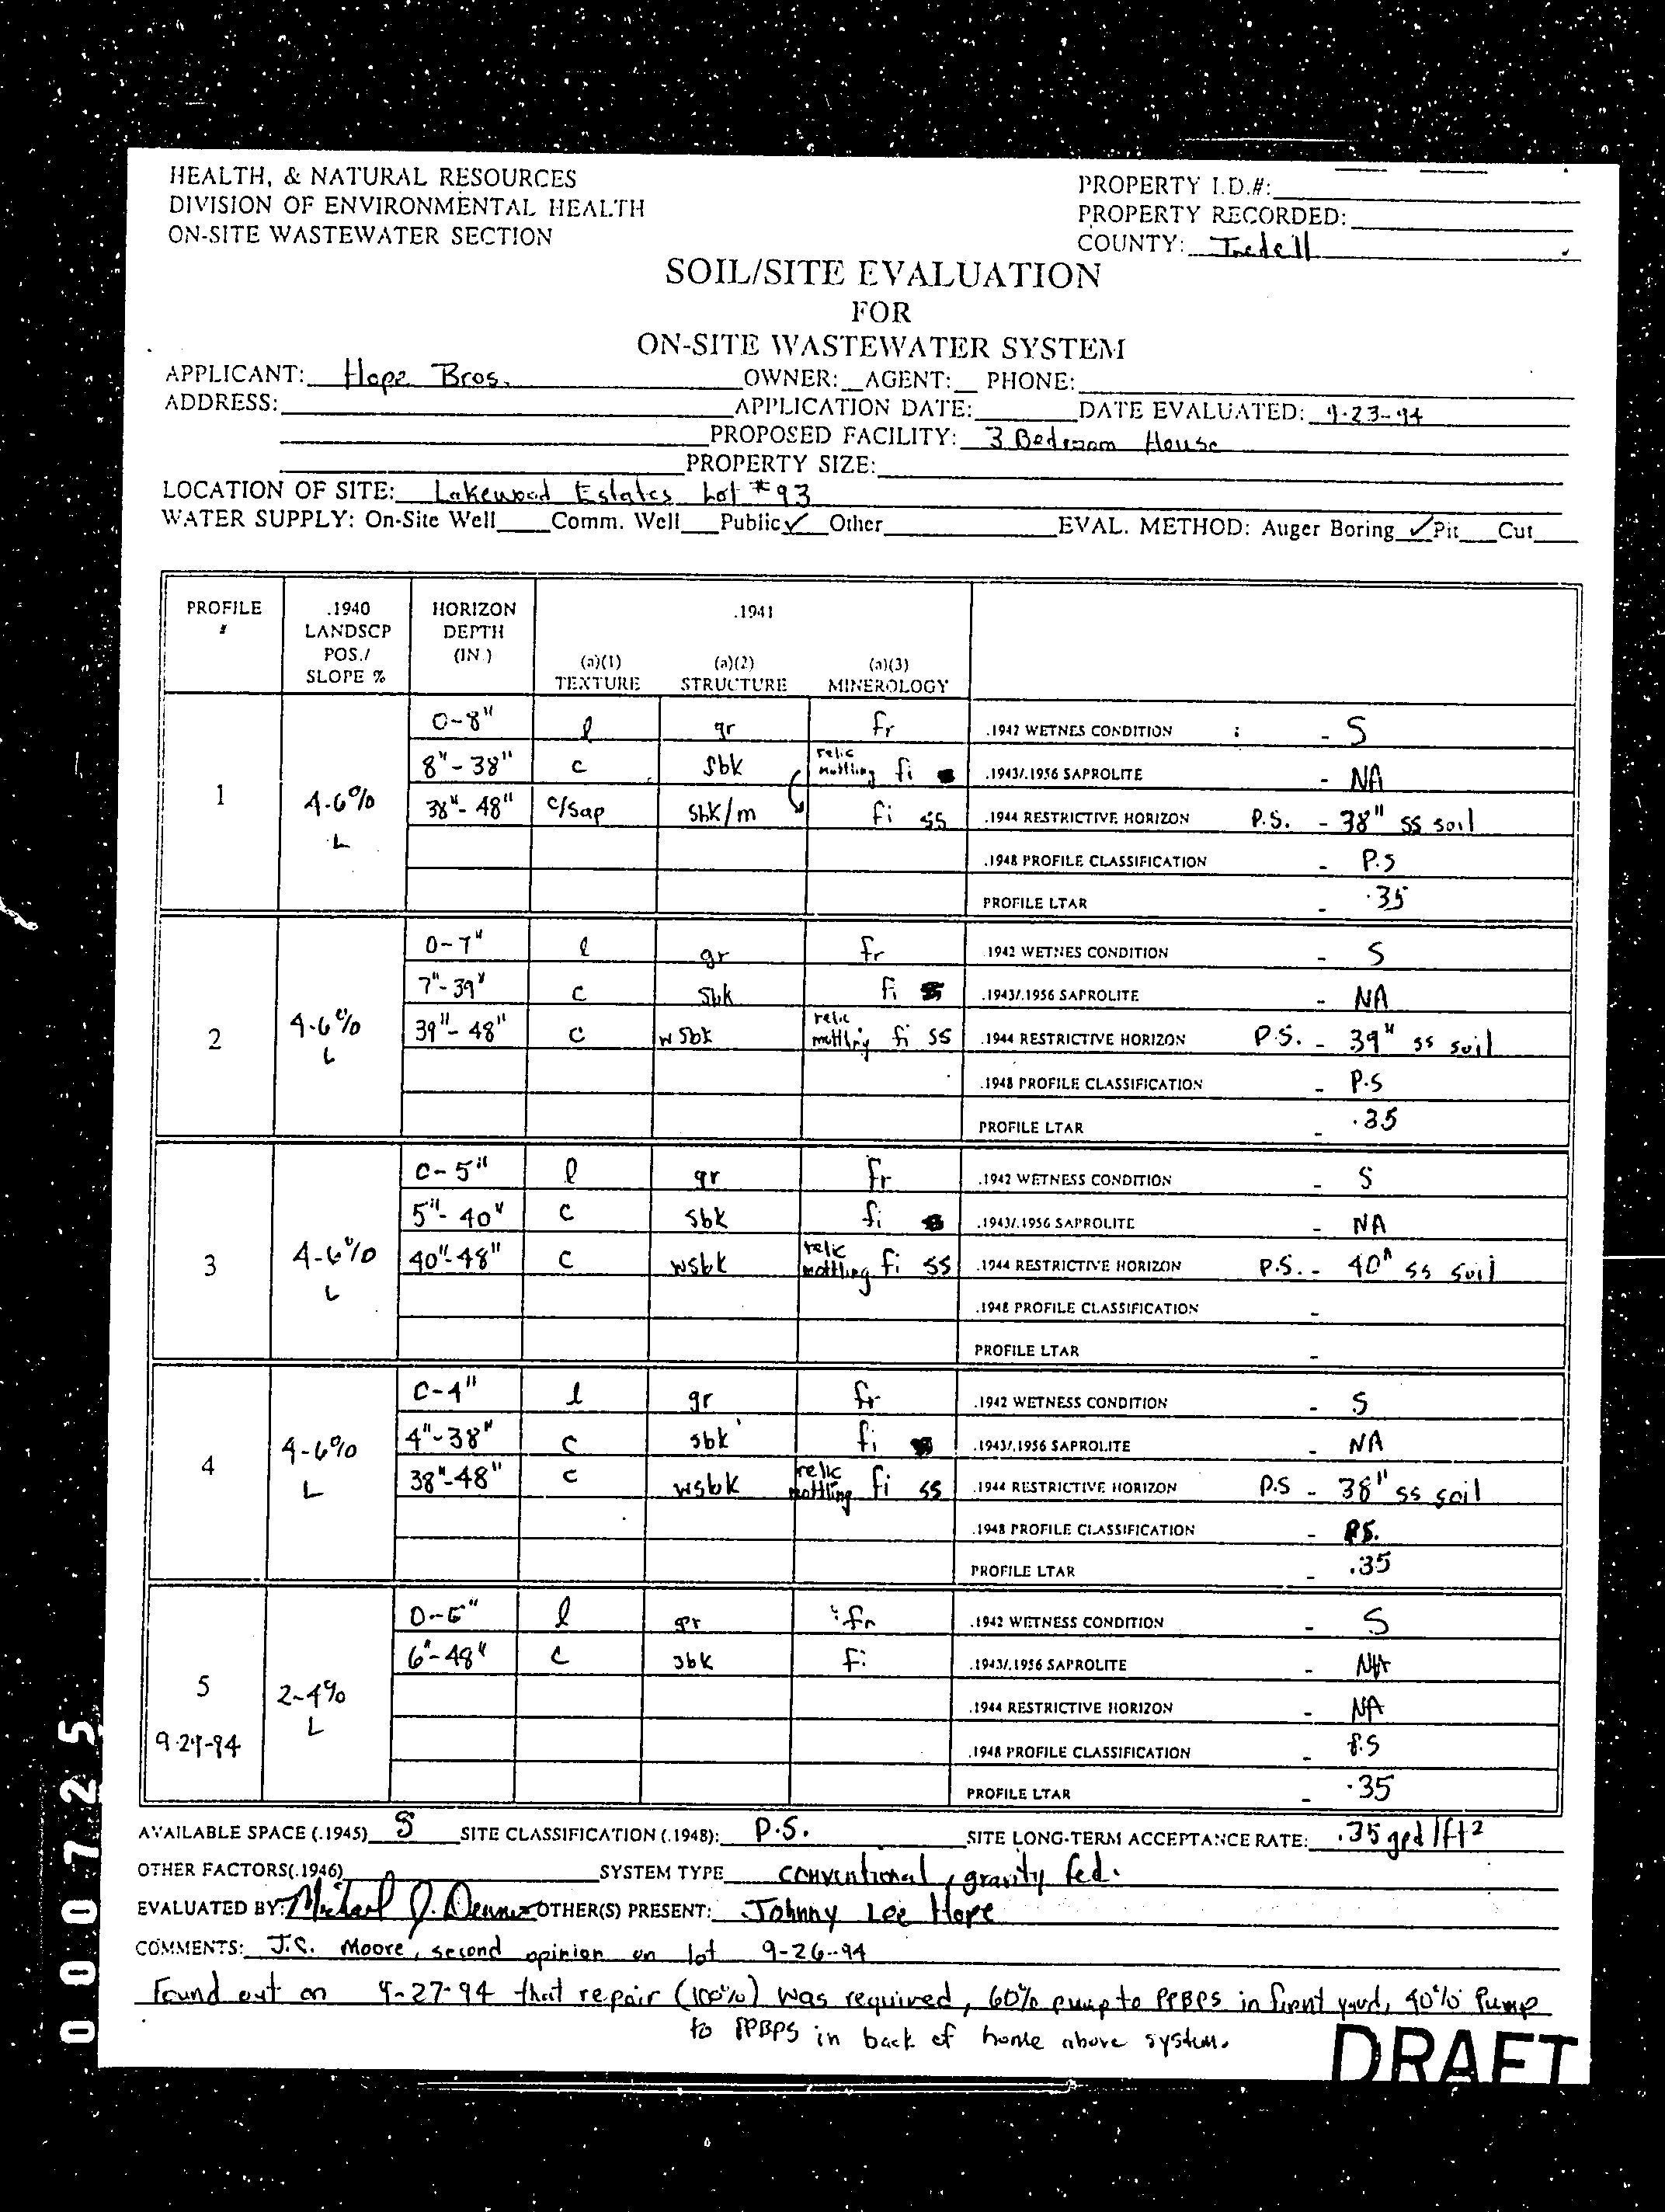 HEALTH, & NATURAL RESOURCES
DIVISION OF ENVIRONMENTAL HEALTH
ON-SITE WASTEWATER SECTION
PROPERTY I.D.#:
PROPERTY RECORDED:
COUNTY: Iredell
SOIL/SITE EVALUATION
FOR
ON-SITE WASTEWATER SYSTEM
APPLICANT: Hope Bros. OWNER: AGENT: PHONE:
ADDRESS: APPLICATION DATE: DATE EVALUATED: 9-23-94
PROPOSED FACILITY: 3 Bedroom House
PROPERTY SIZE:
LOCATION OF SITE: Lakewood Estates Lot #93
WATER SUPPLY: On-Site Well Comm. Well Public ✓ Other EVAL. METHOD: Auger Boring ✓ Pit Cut
PROFILE # .1940 LANDSCP POS./ SLOPE % HORIZON DEPTH (IN.) .1941
(a)(1) TEXTURE (a)(2) STRUCTURE (a)(3) MINEROLOGY
1 4-6% L
0-8" l gr fr .1942 WETNES CONDITION : - S
8"-38" c sbk relic mottling fi .1943/.1956 SAPROLITE - NA
38"-48" c/sap sbk/m fi ss .1944 RESTRICTIVE HORIZON P.S. - 38" ss soil
.1948 PROFILE CLASSIFICATION - P.S
PROFILE LTAR - .35
2 4-6% L
0-7" l gr fr .1942 WETNES CONDITION - S
7"-39" c sbk fi .1943/.1956 SAPROLITE - NA
39"-48" c wsbk relic mottling fi ss .1944 RESTRICTIVE HORIZON P.S. - 39" ss soil
.1948 PROFILE CLASSIFICATION - P.S
PROFILE LTAR - .35
3 4-6% L
0-5" l gr fr .1942 WETNESS CONDITION - S
5"-40" c sbk fi .1943/.1956 SAPROLITE - NA
40"-48" c wsbk relic mottling fi ss .1944 RESTRICTIVE HORIZON P.S. - 40" ss soil
.1948 PROFILE CLASSIFICATION -
PROFILE LTAR -
4 4-6% L
0-4" l gr fr .1942 WETNESS CONDITION - S
4"-38" c sbk fi .1943/.1956 SAPROLITE - NA
38"-48" c wsbk relic mottling fi ss .1944 RESTRICTIVE HORIZON P.S - 38" ss soil
.1948 PROFILE CLASSIFICATION - P.S.
PROFILE LTAR - .35
5 9-27-94 2-4% L
0-6" l gr fr .1942 WETNESS CONDITION - S
6"-48" c sbk fi .1943/.1956 SAPROLITE - NA
.1944 RESTRICTIVE HORIZON - NA
.1948 PROFILE CLASSIFICATION - P.S
PROFILE LTAR - .35
AVAILABLE SPACE (.1945) S SITE CLASSIFICATION (.1948): P.S. SITE LONG-TERM ACCEPTANCE RATE: .35 gpd/ft2
OTHER FACTORS(.1946) SYSTEM TYPE conventional, gravity fed.
EVALUATED BY: Michael J. OTHER(S) PRESENT: Johnny Lee Hope
COMMENTS: J.C. Moore, second opinion on lot 9-26-94
Found out on 9-27-94 that repair (100%) was required, 60% pump to PPBPS in front yard, 40% Pump
to PPBPS in back of home above system.
DRAFT
000725